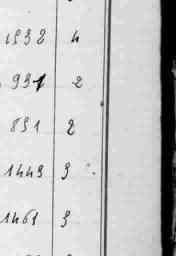 1932 4
931 2
891 2
1449 3
1461 3